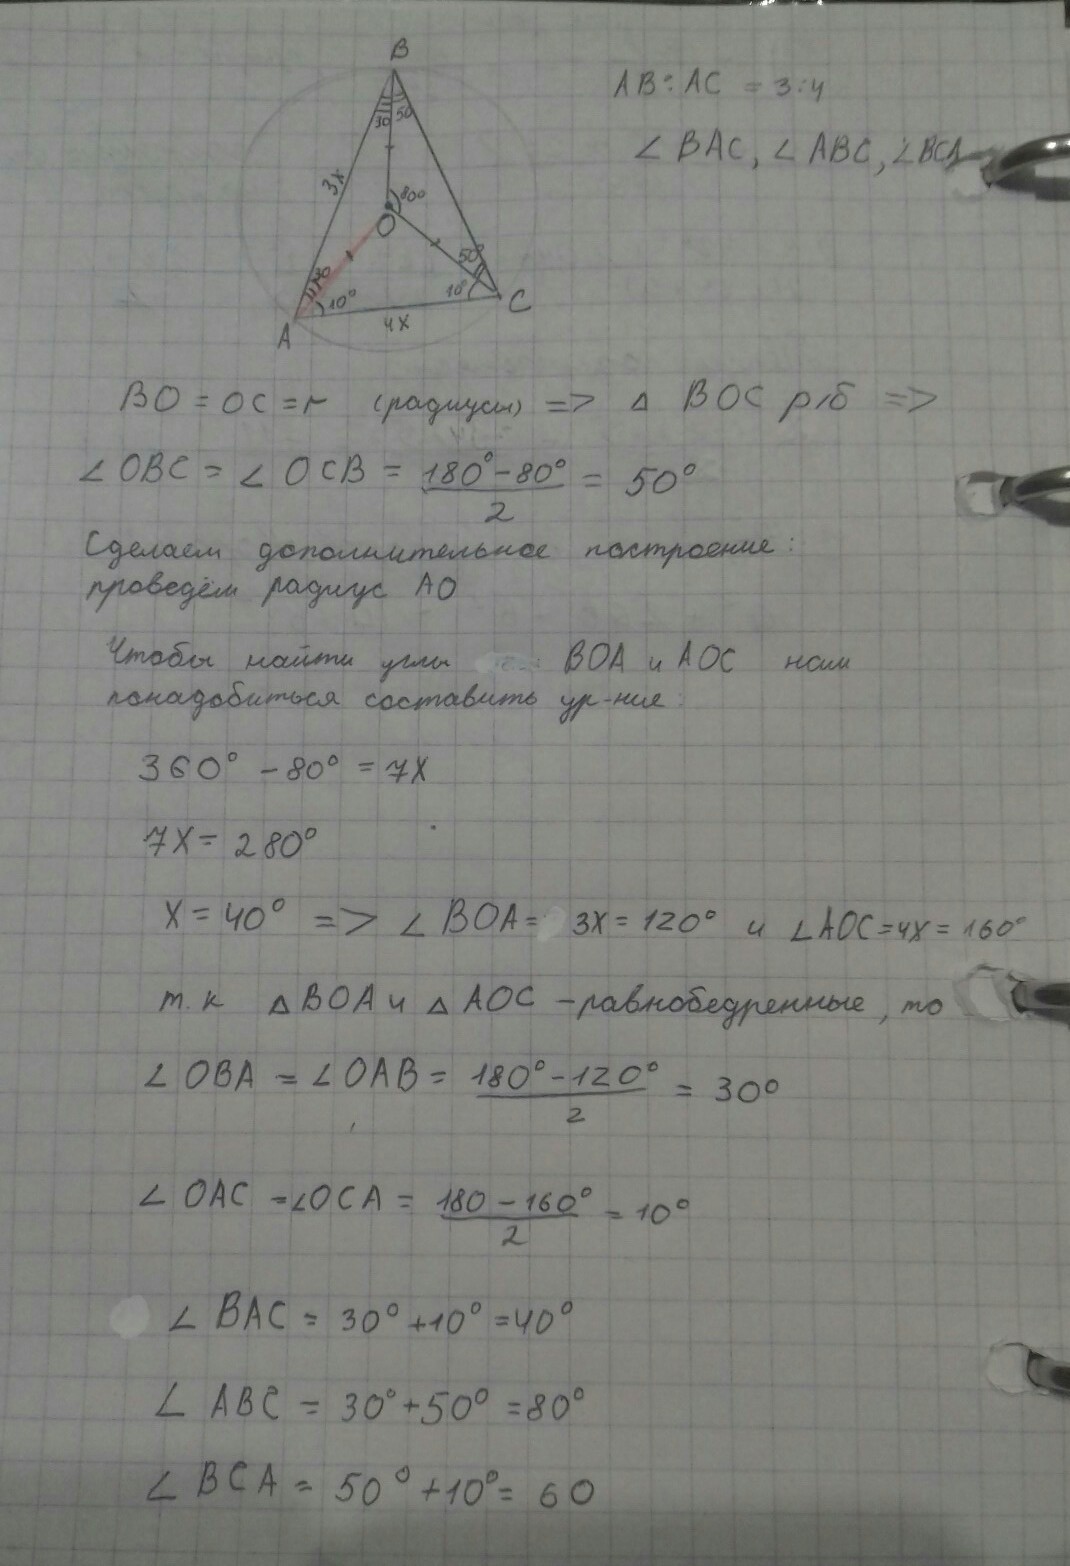 B
AB:AC = 3:4
30 50
∠BAC, ∠ABC, ∠BCA
3x
80°
O
50°
30
10°
10°
C
4x
A
BO = OC = r (радиусы) => △ BOC р/б =>
∠OBC = ∠OCB = (180°-80°)/2 = 50°
Сделаем дополнительное построение:
проведём радиус AO
Чтобы найти углы BOA и AOC нам
понадобиться составить ур-ние:
360° - 80° = 7x
7x = 280°
x = 40° => ∠BOA = 3x = 120° и ∠AOC = 4x = 160°
т.к △BOA и △AOC - равнобедренные, то
∠OBA = ∠OAB = (180°-120°)/2 = 30°
∠OAC = ∠OCA = (180-160°)/2 = 10°
∠BAC = 30°+10° = 40°
∠ABC = 30°+50° = 80°
∠BCA = 50°+10° = 60